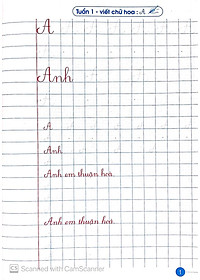 Tuần 1 - viết chữ hoa : A
A
Anh
A
Anh
Anh em thuận hoà
Anh em thuận hoà
1
Scanned with CamScanner